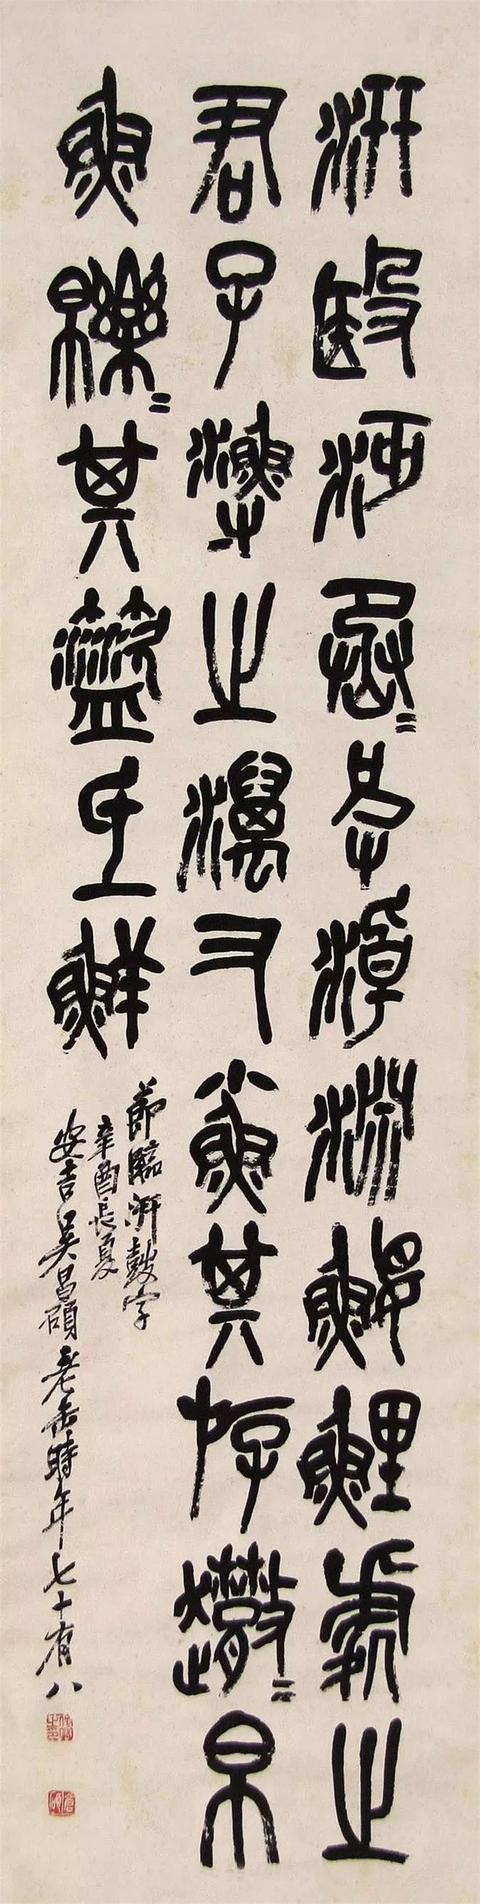 汧殹沔丞=皮淖淵鰋鯉處之
君子漁之澫又小魚其斿帛
魚皪=其氐鮮
節臨汧鼓字
辛酉長夏
安吉吳昌碩老缶時年七十有八
俊卿之印
倉碩